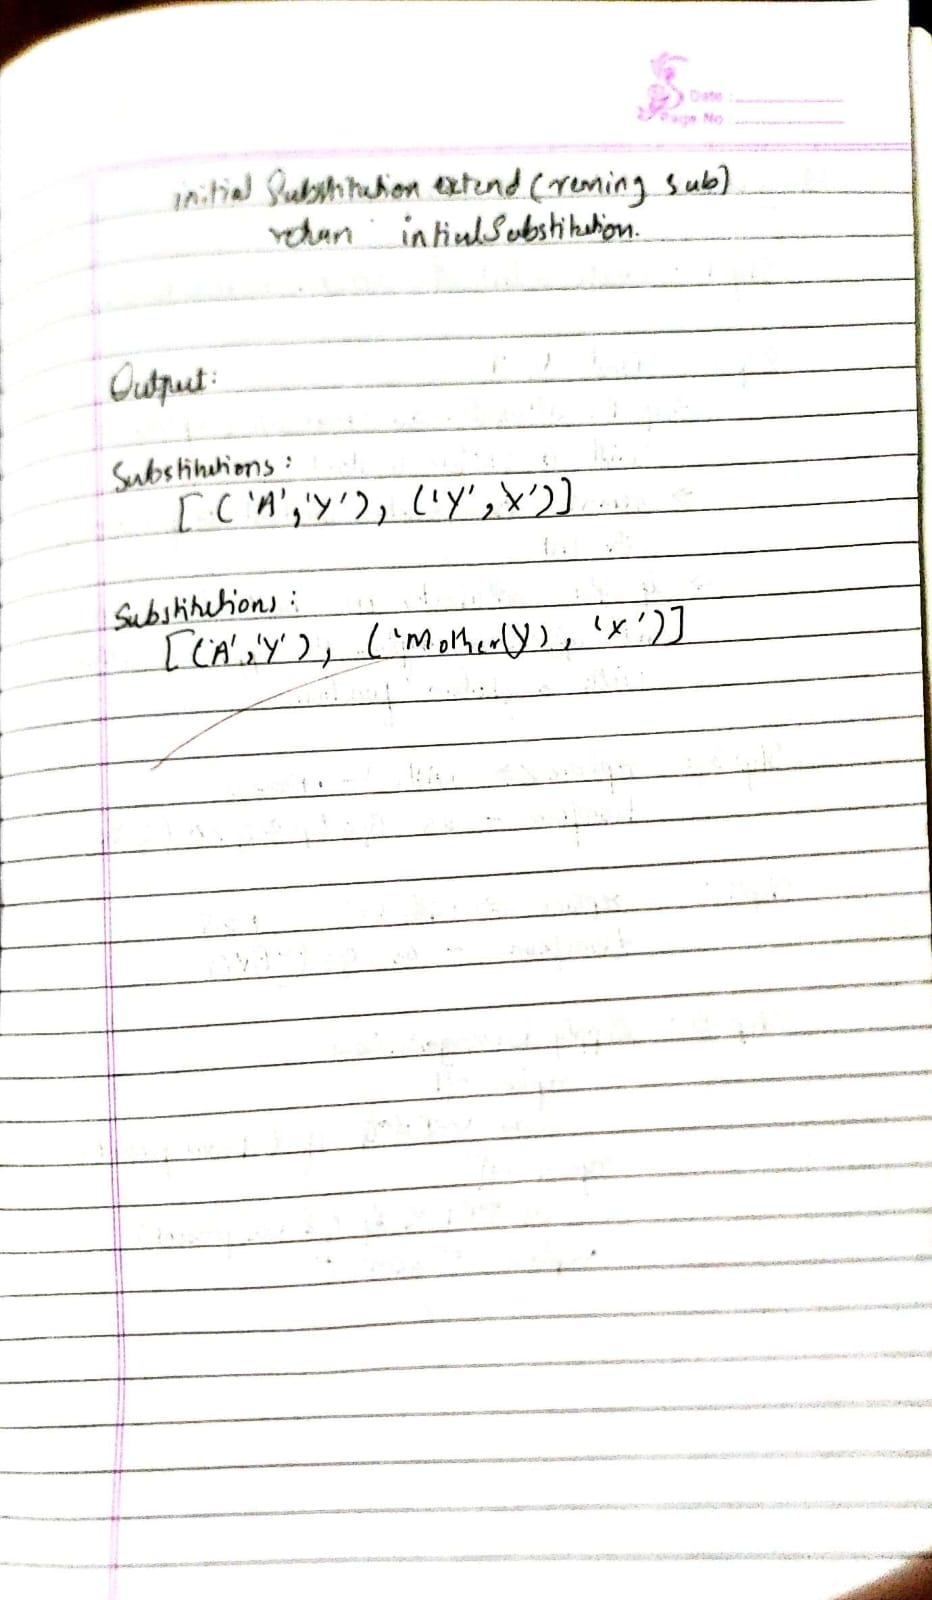 Date :
Page No
initial Substitution extend (reming sub)
rehun intiulSubstitution.
Output:
Substitutions :
[ ('A','Y'), ('Y','X')]
Substitutions :
[('A','Y'), ('Mother(y), 'x')]